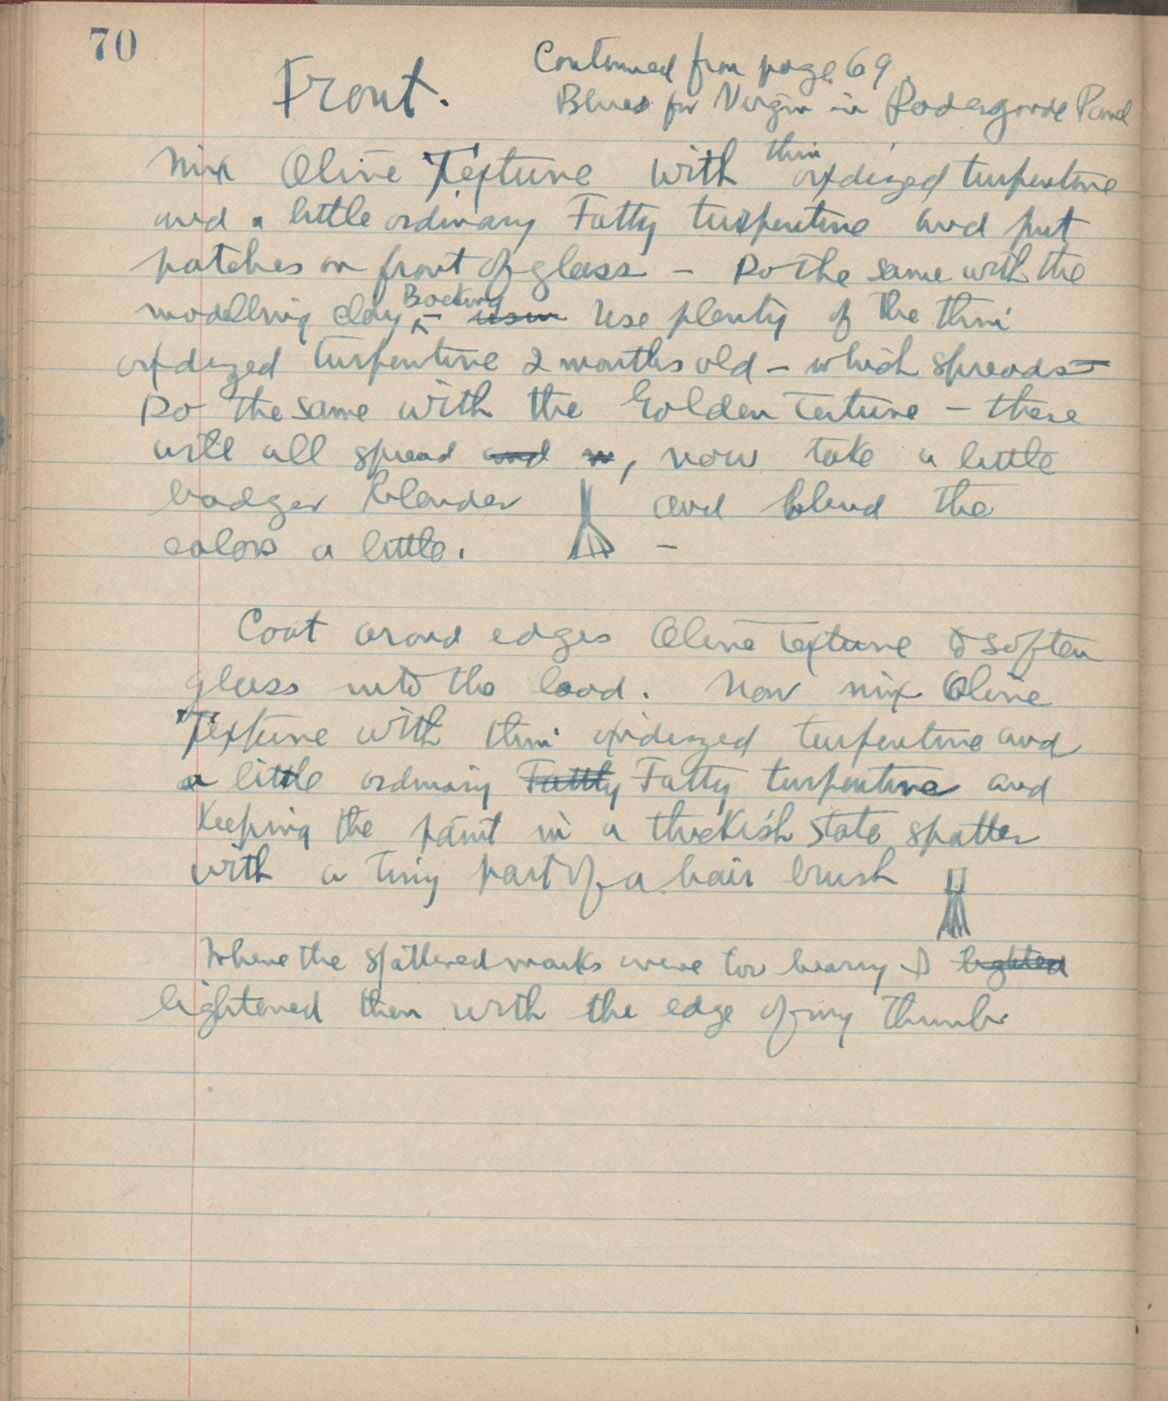 70
Continued from page 69.
Front.
Blues for Virgin in Panel
Mix Olive Texture with thin oxdized turpentine
and a little ordinary Fatty turpentine and put
patches on front of glass – Do the same with the
modelling clay Backing – usin Use plenty of the thin
oxdized turpentine 2 months old – which spreads –
Do the same with the Golden Texture – these
will all spread and, now take a little
badger blender and blend the
colors a little. –
Coat around edges Olive Texture & soften
glass into the lead. Now mix Olive
Texture with thin oxidized turpentine and
a little ordinary Fattty Fatty turpentine and
Keeping the paint in a thickish state spatter
with a Tiny part of a hair brush
Where the spattered marks were too heavy I lighted
lightened them with the edge of my thumb